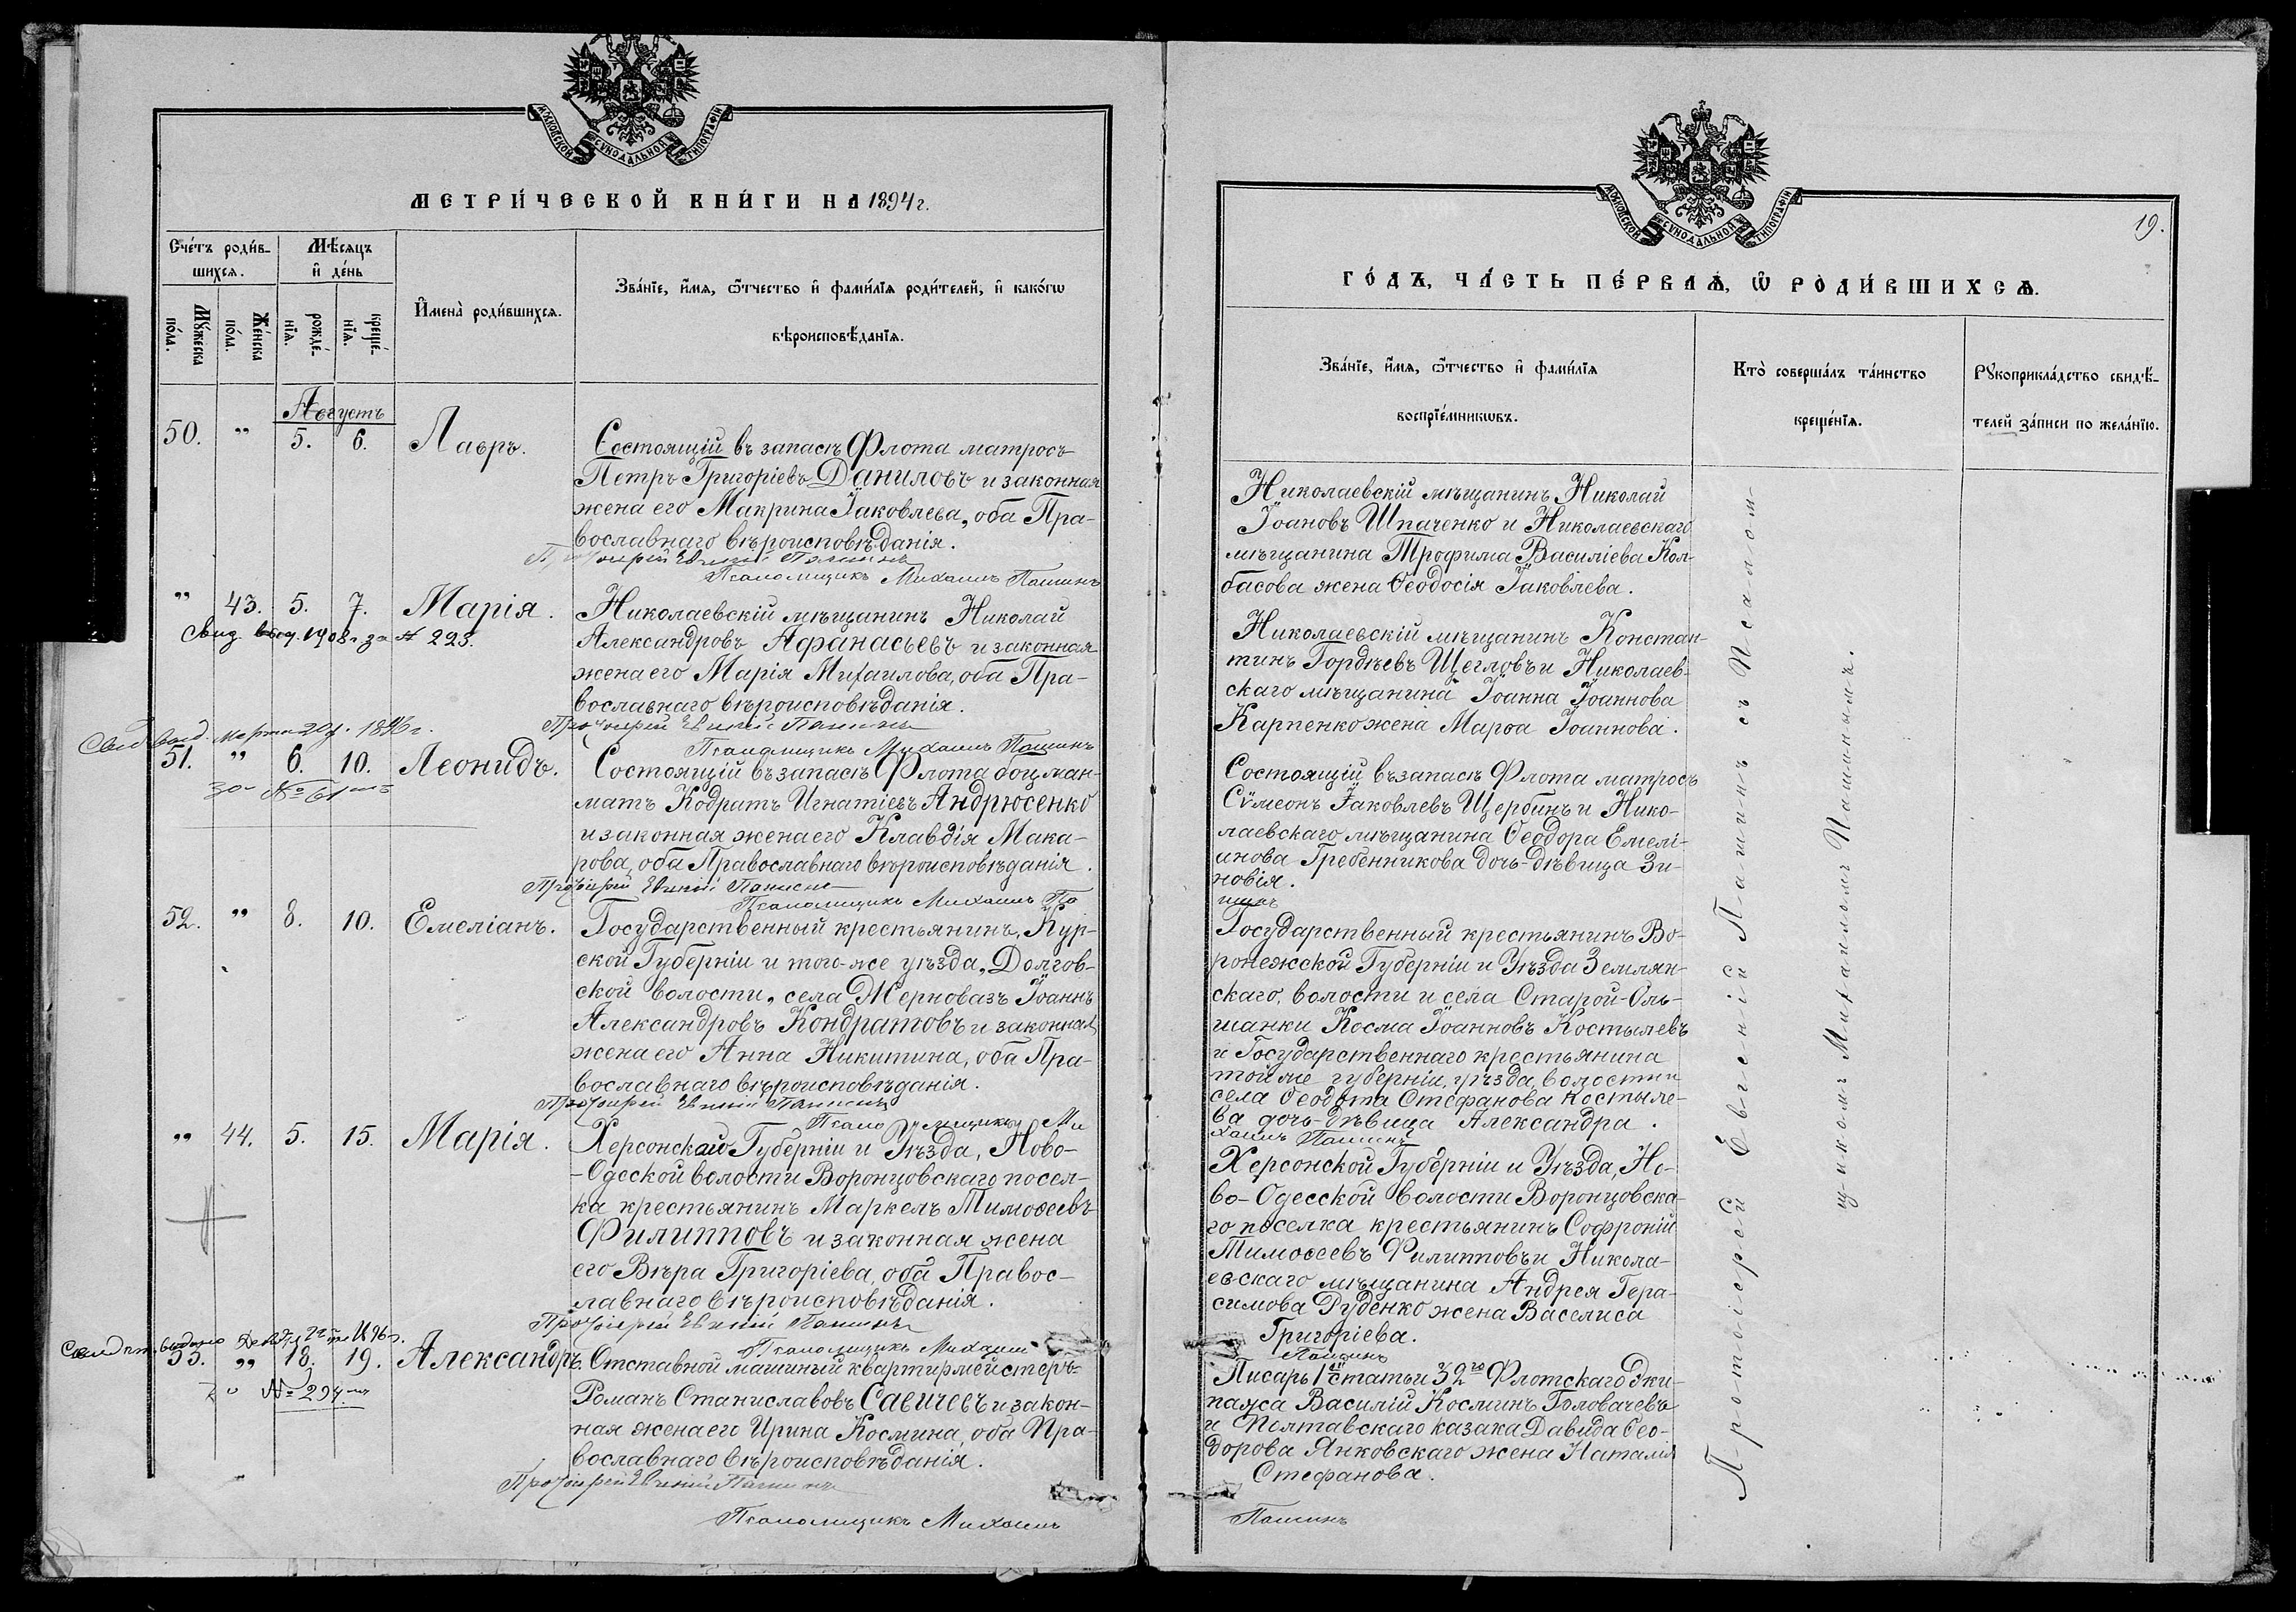 МОСКОВСКОЙ СѴНОДАЛЬНОЙ ТИПОГРАФІИ
МЕТРИ́ЧЕСКОЙ КНИ́ГИ НА 1894 г.
Сче́тъ роди́в-
шихсѧ.
Мѣ́сѧцъ
и҆ де́нь
Мꙋ́жеска
по́ла.
Же́нска
по́ла.
рожде́-
нїѧ.
креще́-
нїѧ.
И҆мена̀ роди́вшихсѧ.
Зва́нїе, и҆́мѧ, ѻ҆́тчество и҆ фами́лїѧ роди́телей, и҆ како́гѡ
вѣроисповѣ́данїѧ.
Августъ
50. " 5. 6. Лавръ.
Состоящій въ запасѣ Флота матросъ
Петръ Григоріевъ Даниловъ и законная
жена его Макрина Іаковлева, оба Пра-
вославнаго вѣроисповѣданія.
Протоіерей Евгеній Пашинъ
Псаломщикъ Михаилъ Пашинъ
" 43. 5. 7. Марія.
Свид. выд. 1908 г. за № 223.
Николаевскій мѣщанинъ Николай
Александровъ Афанасьевъ и законная
жена его Марія Михаилова, оба Пра-
вославнаго вѣроисповѣданія.
Протоіерей Евгеній Пашинъ
Псаломщикъ Михаилъ Пашинъ
Свид. выд. марта 20 д. 1896 г.
51. " 6. 10. Леонидъ.
за № 61
Состоящій въ запасѣ Флота боцман-
матъ Кодратъ Игнатіевъ Андрюсенко
и законная жена его Клавдія Мака-
рова, оба Православнаго вѣроисповѣданія.
Протоіерей Евгеній Пашинъ
Псаломщикъ Михаилъ Па
52. " 8. 10. Емеліанъ.
Государственный крестьянинъ, Кур-
ской Губерніи и того-же уѣзда, Долгов-
ской волости, села Жерновазъ Іоаннъ
Александровъ Кондратовъ и законная
жена его Анна Никитина, оба Пра-
вославнаго вѣроисповѣданія.
Протоіерей Евгеній Пашинъ
Псаломщикъ Ми
" 44. 5. 15. Марія.
Херсонской Губерніи и Уѣзда, Ново-
-Одесской волости Воронцовскаго посел-
ка крестьянинъ Маркелъ Тимоѳеевъ
Филипповъ и законная жена
его Вѣра Григоріева, оба Правос-
лавнаго вѣроисповѣданія.
Протоіерей Евгеній Пашинъ
Псаломщикъ Михаилъ
53. " 18. 19. Александръ.
за № 294
Отставной машинный квартирмейстеръ
Романъ Станиславовъ Савичевъ и закон-
ная жена его Ирина Космина, оба Пра-
вославнаго вѣроисповѣданія.
Протоіерей Евгеній Пашинъ
Псаломщикъ Михаилъ
МОСКОВСКОЙ СѴНОДАЛЬНОЙ ТИПОГРАФІИ
19.
ГО́ДЪ, ЧА́СТЬ ПЕ́РВАѦ, Ѡ҆ РОДИ́ВШИХСѦ.
Зва́нїе, и҆́мѧ, ѻ҆́тчество и҆ фами́лїѧ
воспрїе́мникѡвъ.
Кто̀ соверша́лъ та́инство
креще́нїѧ.
Рꙋкоприкла́дство свидѣ́-
телей за́писи по жела́нїю.
Николаевскій мѣщанинъ Николай
Іоановъ Шпаченко и Николаевскаго
мѣщанина Трофима Василіева Кол-
басова жена Ѳеодосія Іаковлева.
Николаевскій мѣщанинъ Констан-
тинъ Гордѣевъ Щегловъ и Николаев-
скаго мѣщанина Іоанна Іоаннова
Карпенко жена Марѳа Іоаннова.
Состоящій въ запасѣ Флота матросъ
Сѵмеонъ Іаковлевъ Щербинъ и Нико-
лаевскаго мѣщанина Ѳеодора Емелі-
анова Гребенникова дочь-дѣвица Зи-
новія.
шинъ
Государственный крестьянинъ Во-
ронежской Губерніи и Уѣзда Землян-
скаго, волости и села Старой-Оль-
шанки Косма Іоанновъ Костылевъ
и Государственнаго крестьянина
той же губерніи, уѣзда, волости и
села Ѳеодота Стефанова Костыле-
ва дочь-дѣвица Александра.
хаилъ Пашинъ
Херсонской Губерніи и Уѣзда, Но-
во-Одесской волости Воронцовска-
го поселка крестьянинъ Софроній
Тимоѳеевъ Филипповъ и Никола-
евскаго мѣщанина Андрея Гера-
симова Руденко жена Васелиса
Григоріева.
Пашинъ
Писарь 1ой статьи 32го Флотскаго Эки-
пажа Василій Косминъ Головачевъ
и Полтавскаго казака Давида Ѳео-
дорова Янковскаго жена Наталія
Стефанова.
Пашинъ
Протоіерей Евгеній Пашинъ съ Псалом-
щикомъ Михаиломъ Пашинымъ.